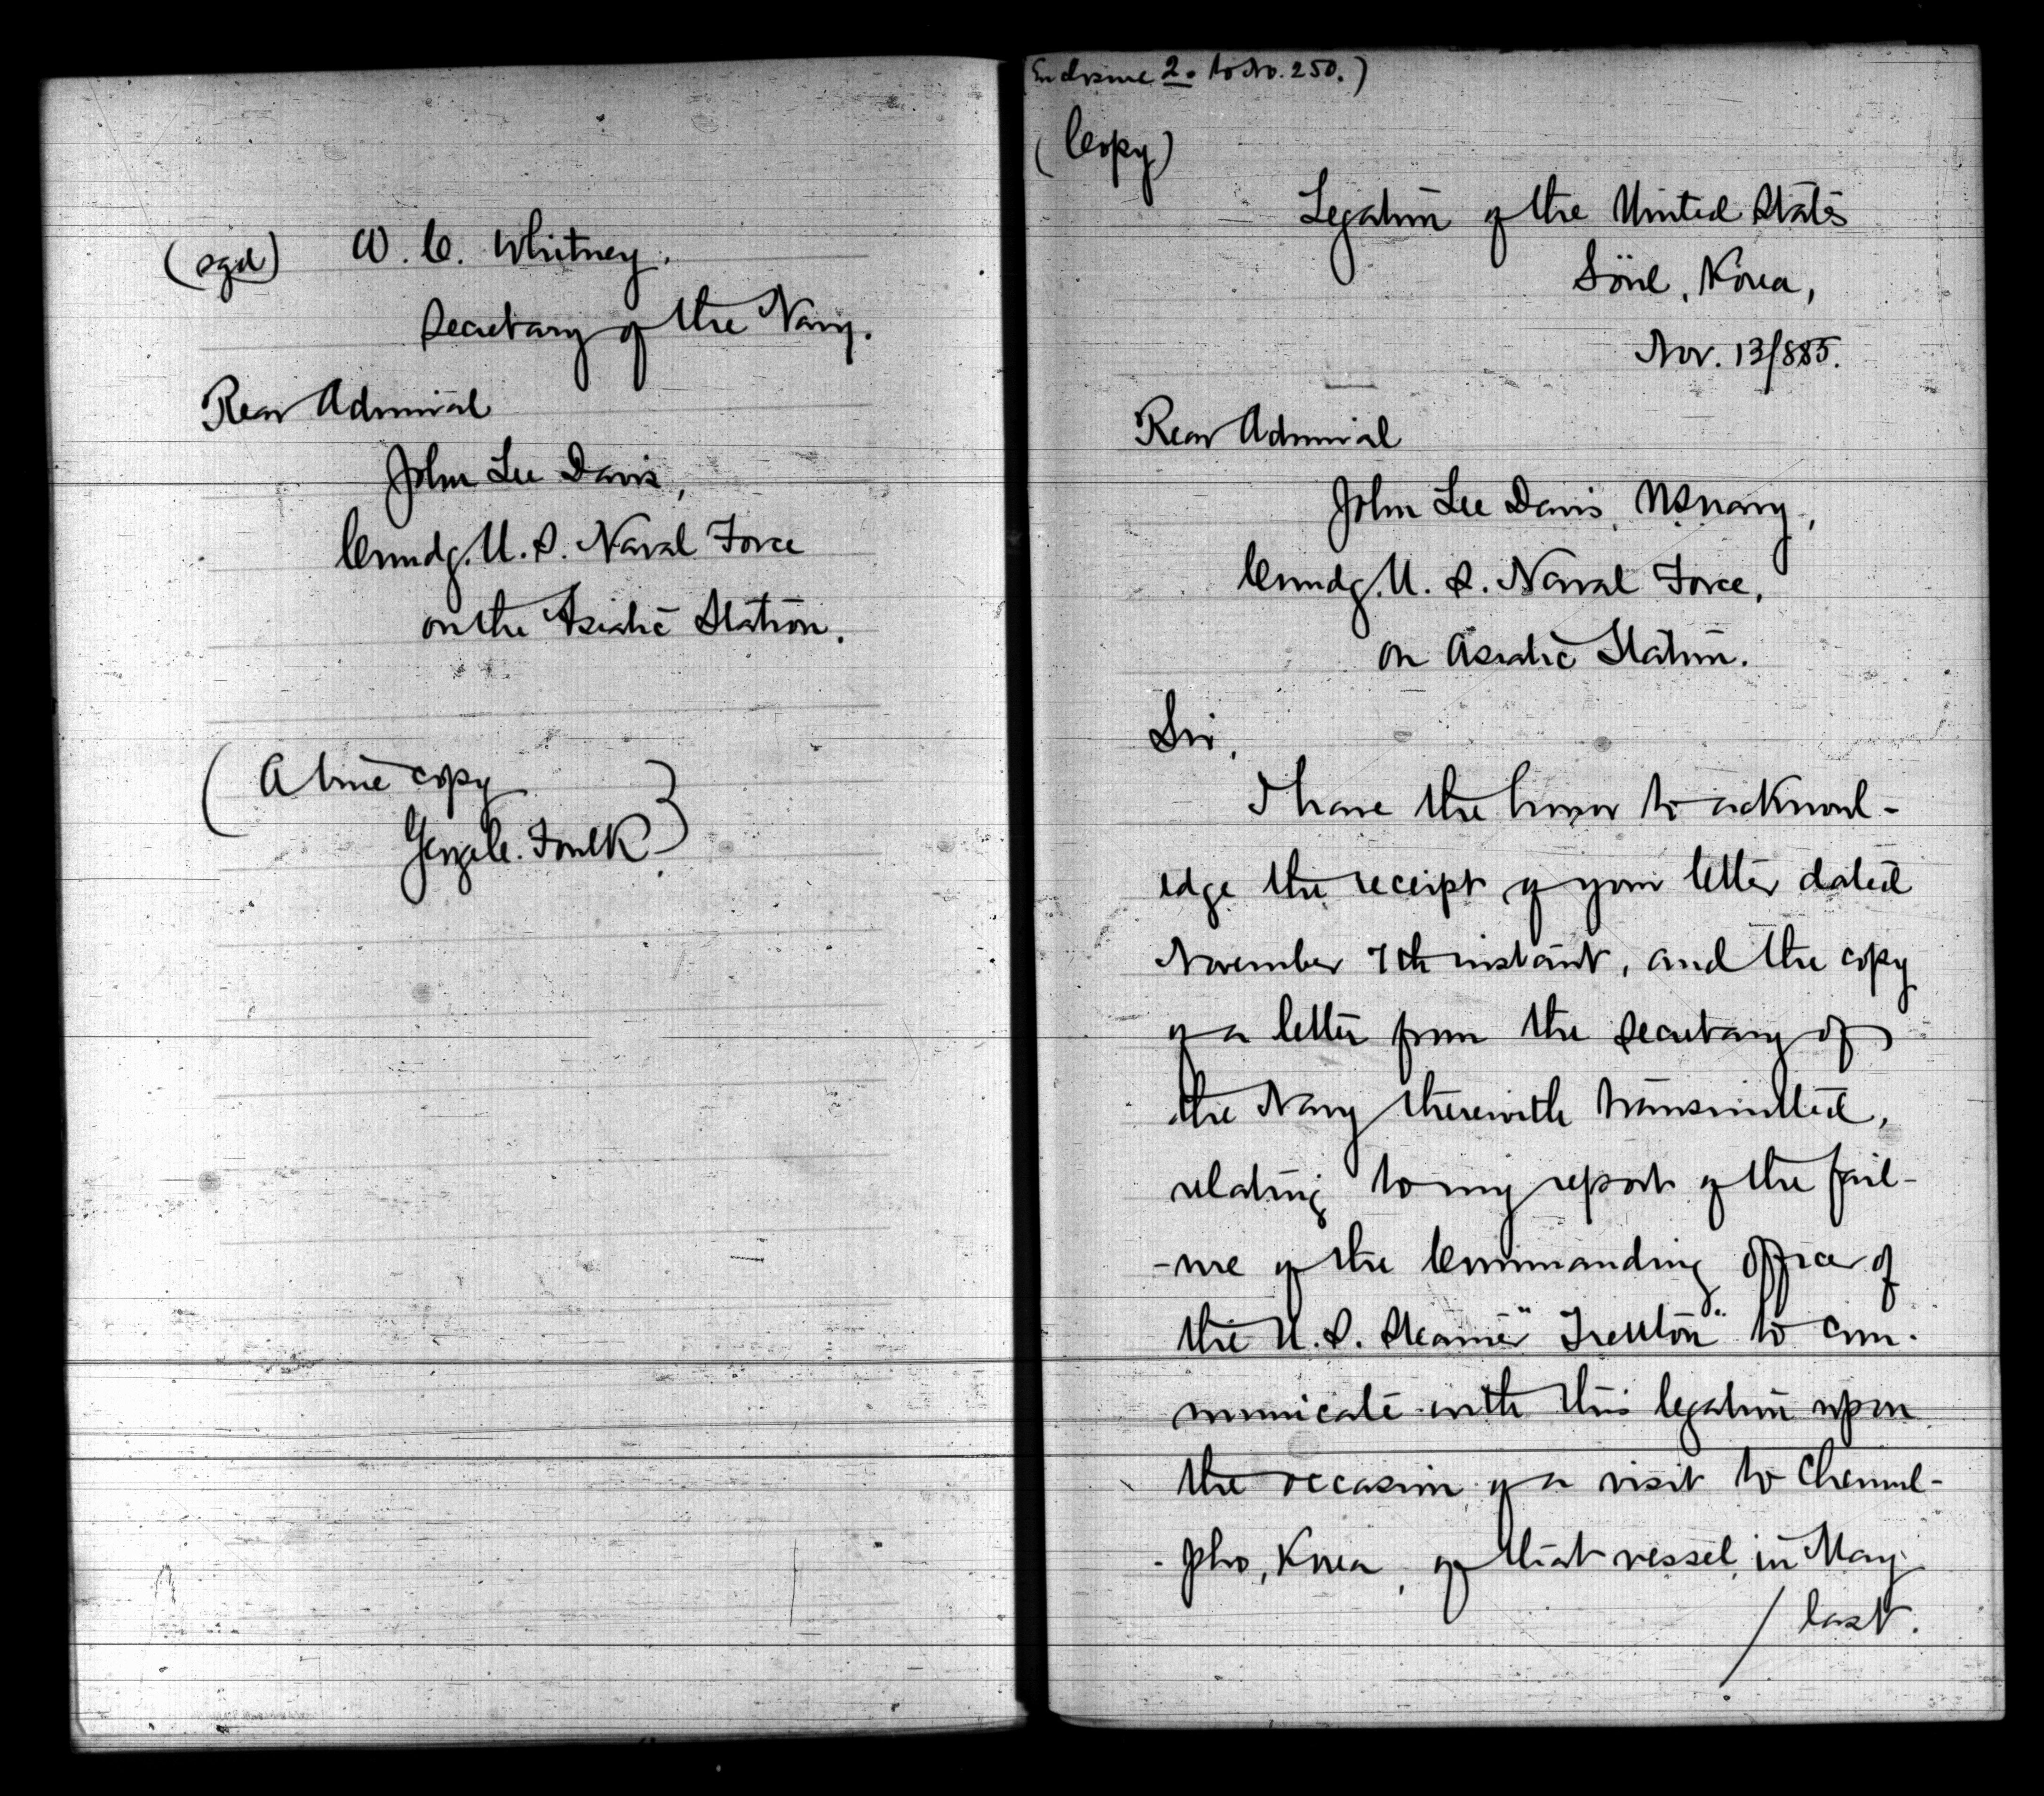 (sgd) W. C. Whitney.
Secretary of the Navy.
Rear Admiral
John Lee Davis,
Commdg. U. S. Naval Force
on the Asiatic Station.
(A true copy
George C. Foulk.)
Enclosure 2. to No. 250.)
(Copy)
Legation of the United States
Söul, Korea,
Nov. 13/885.
Rear Admiral
John Lee Davis, USNavy,
Commdg. U. S. Naval Force,
on Asiatic Station.
Sir,
I have the honor to acknowl-
edge the receipt of your letter dated
November 7th instant, and the copy
of a letter from the Secretary of
the Navy therewith transmitted,
relating to my report of the fail-
-ure of the Commanding Officer of
the U. S. Steamer "Trenton" to com-
municate with this legation upon
the occasion of a visit to Chemul-
-pho, Korea, of that vessel, in May
/ last.